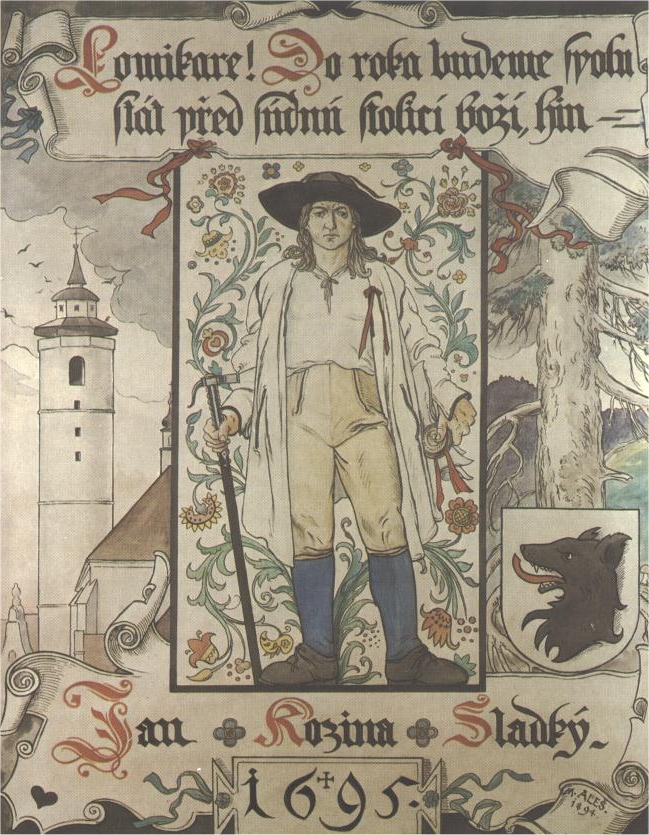 Lomikare! Do roka budeme spolu
stát před súdnú stolicí boží, hin —
Jan Kozina Sladký.
1695.
M. ALEŠ.
1894.